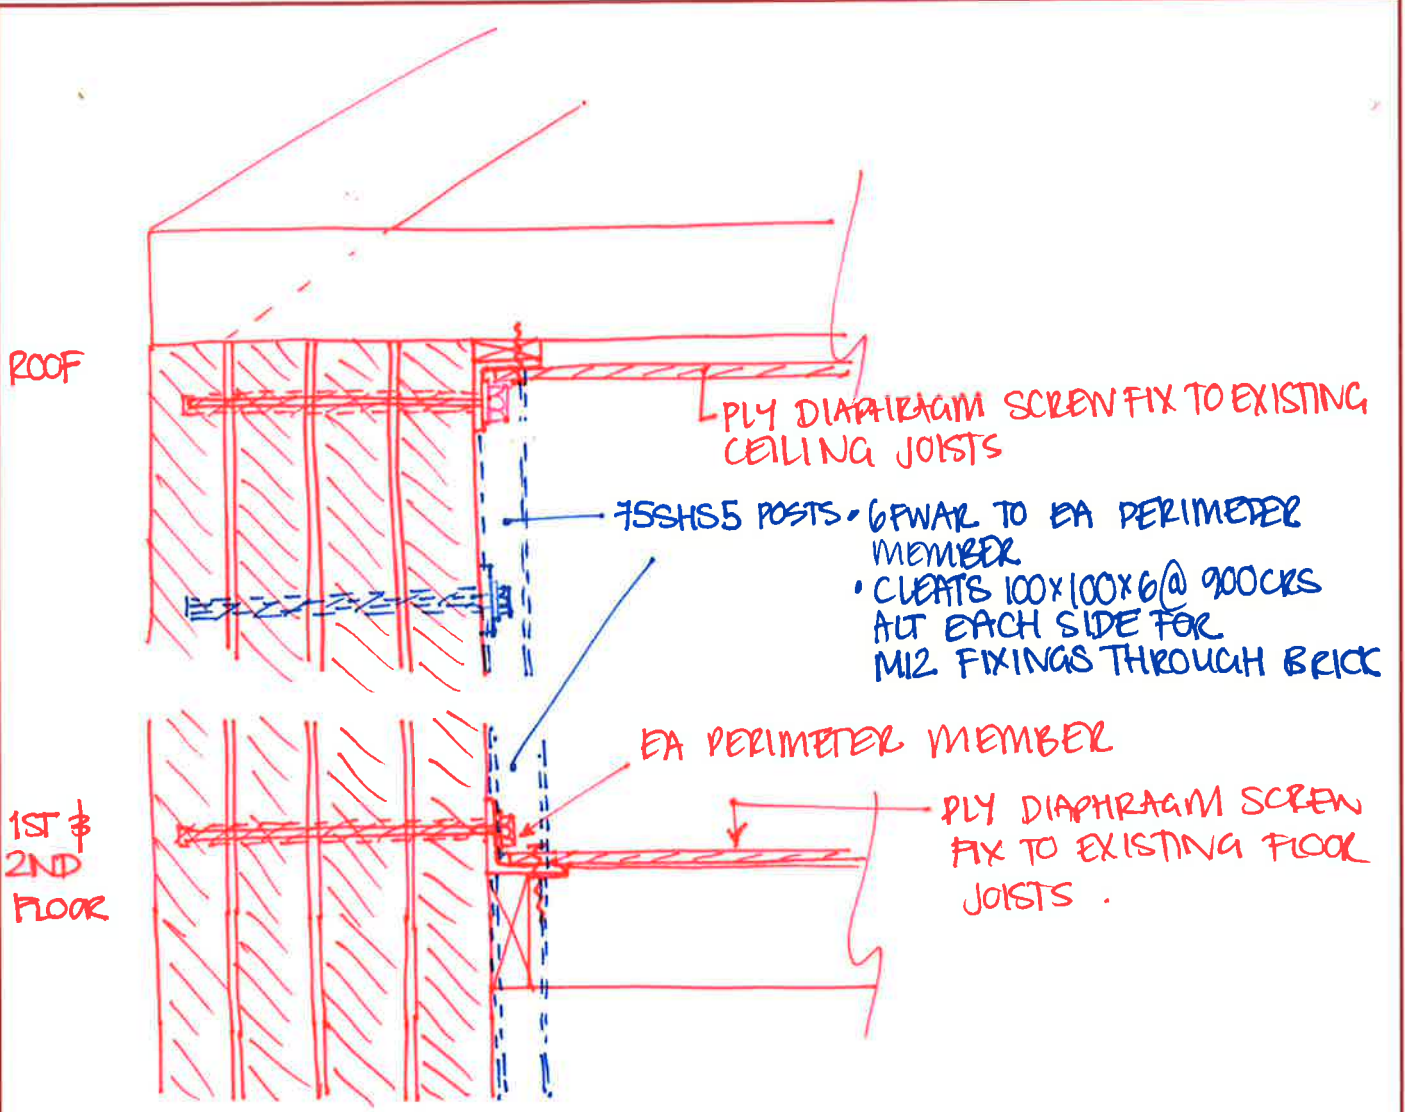 ROOF
PLY DIAPHRAGM SCREW FIX TO EXISTING
CEILING JOISTS
75SHS5 POSTS • 6FWAR TO EA PERIMETER
MEMBER
• CLEATS 100x100x6 @ 900CRS
ALT EACH SIDE FOR
M12 FIXINGS THROUGH BRICK
EA PERIMETER MEMBER
PLY DIAPHRAGM SCREW
FIX TO EXISTING FLOOR
JOISTS .
1ST &
2ND
FLOOR